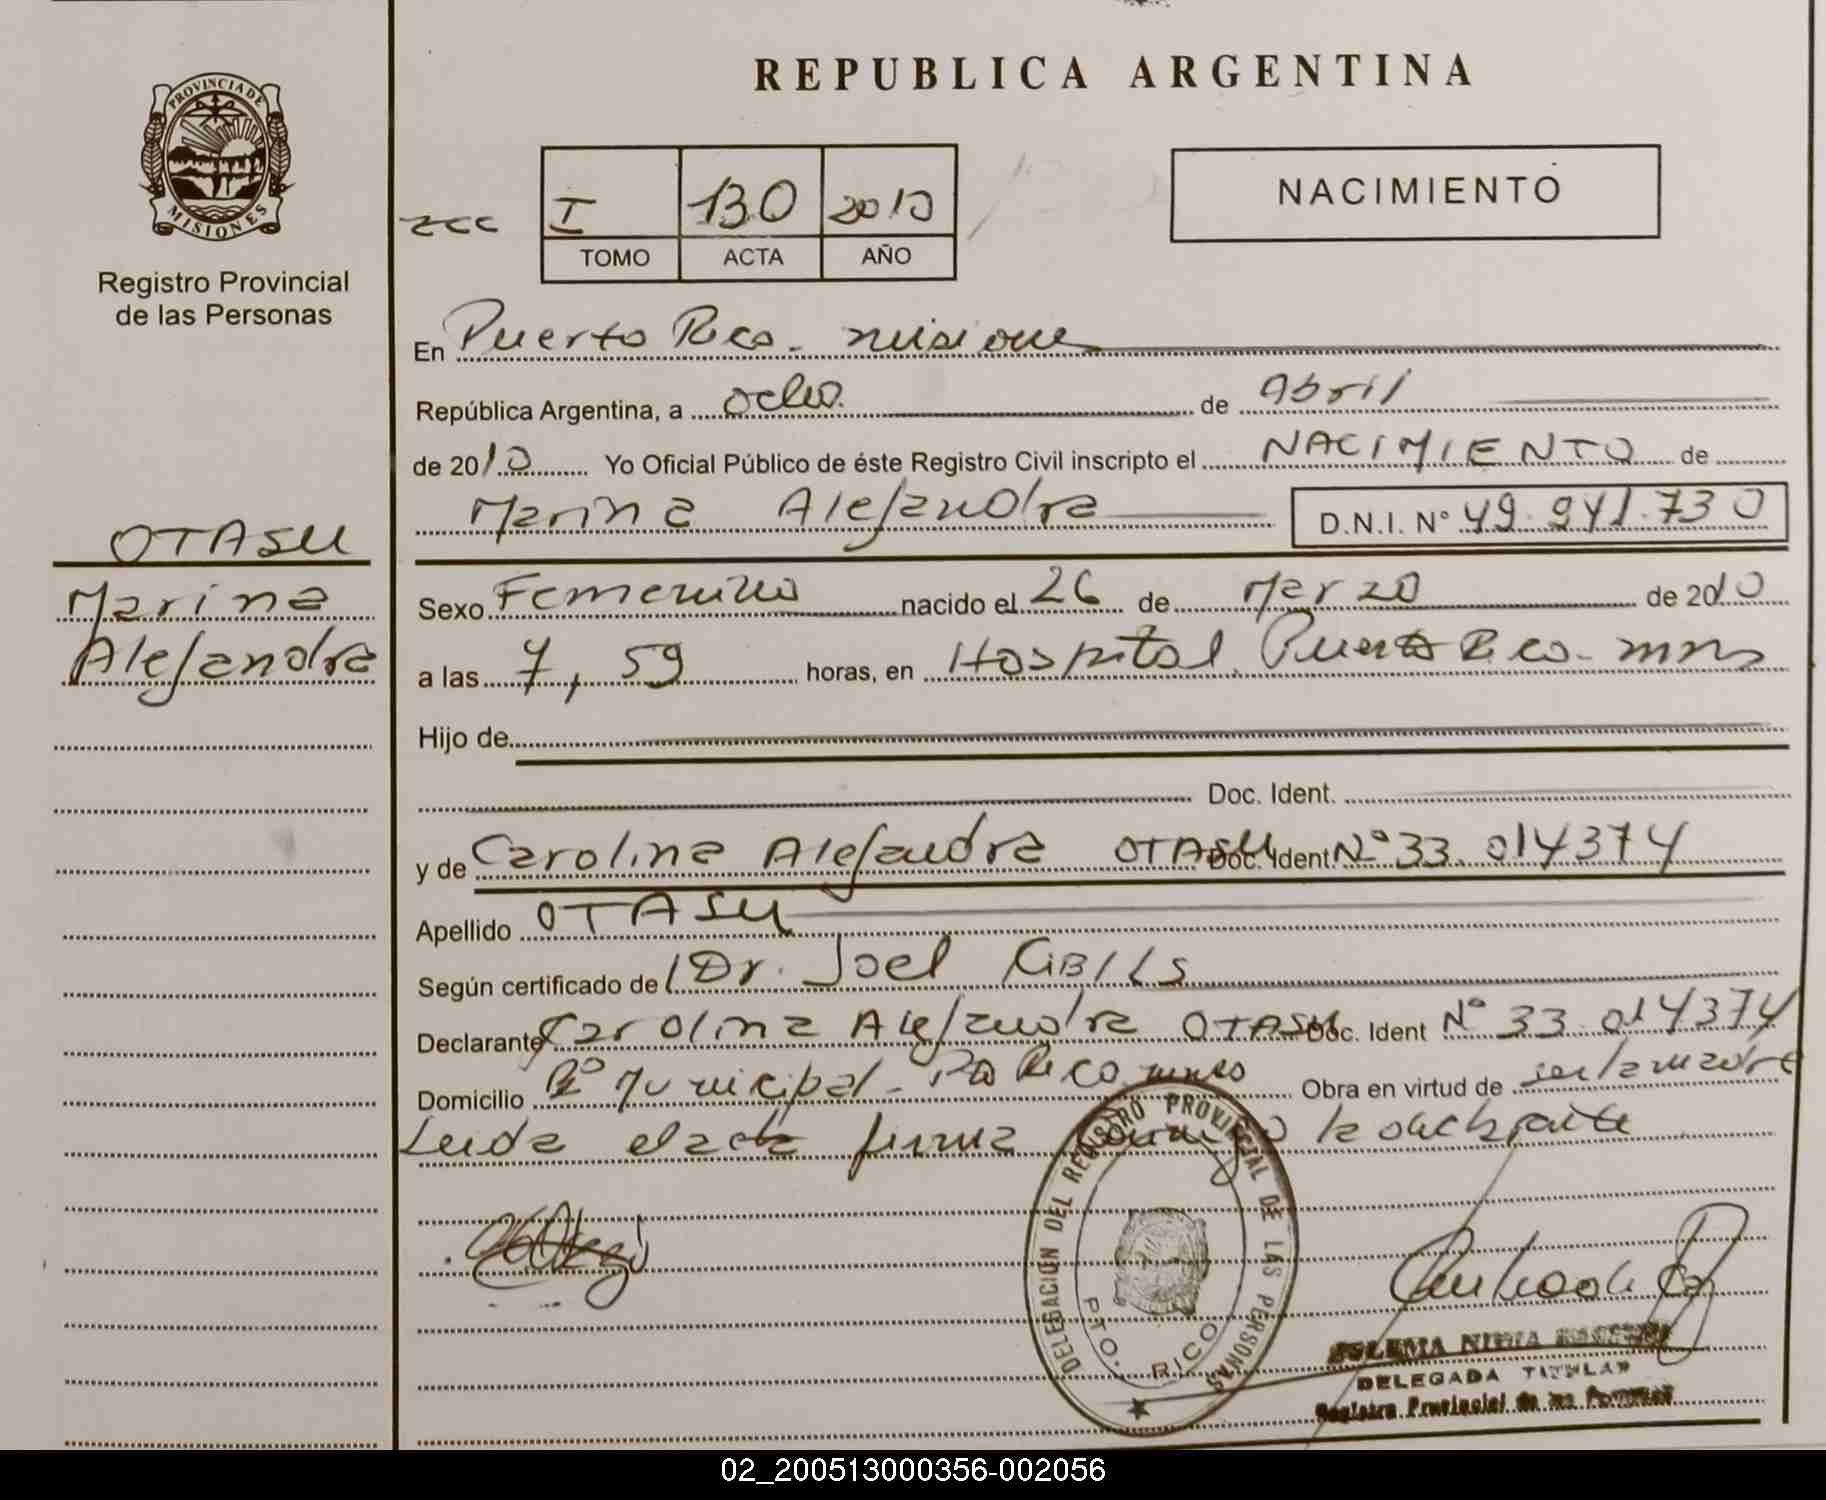 REPUBLICA ARGENTINA
PROVINCIA DE MISIONES
Registro Provincial
de las Personas
I 130 2010
TOMO ACTA AÑO
NACIMIENTO
En Puerto Rico - misiones
República Argentina, a ocho de abril
de 2010 Yo Oficial Público de éste Registro Civil inscripto el NACIMIENTO de
Marina Alejandra D.N.I. N° 49.941.730
OTASU
Marina
Alejandra
Sexo Femenino nacido el 26 de Marzo de 2010
a las 7,59 horas, en Hospital Puerto Rico - mnes
Hijo de
Doc. Ident.
y de Carolina Alejandra OTASU Doc. Ident. N° 33.014374
Apellido OTASU
Según certificado de Dr. Joel KiBILS
Declarante Carolina Alejandra OTASU Doc. Ident N° 33.014374
Domicilio B° Municipal - Pto Rico mnes Obra en virtud de ser la madre
Leida el acta firma conmigo la declarante
DELEGACION DEL REGISTRO PROVINCIAL DE LAS PERSONAS
PTO. RICO
DELEGADA TITULAR
Registro Provincial de las Personas
02_200513000356-002056